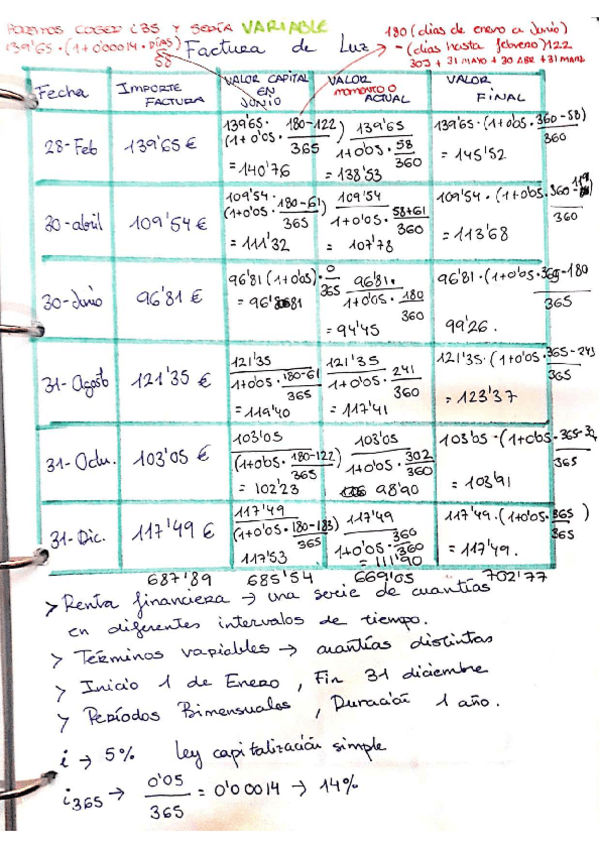 PODEMOS COGER i35 Y SERÍA VARIABLE
139'65·(1+0'00014·DÍAS)
58
180 (días de enero a Junio)
-(días hasta febrero) 122
30J + 31 MAYO + 30 ABR + 31 MARZ
Factura de Luz
Fecha
IMPORTE FACTURA
VALOR CAPITAL EN JUNIO
VALOR MOMENTO 0 ACTUAL
VALOR FINAL
28-Feb
139'65 €
139'65· (1+0'05· 180-122 / 365)
= 140'76
139'65 / 1+0'05· 58/360
= 138'53
139'65·(1+0'05· 360-58 / 360
= 145'52
30-abril
109'54 €
109'54· (1+0'05· 180-61) / 365
= 111'32
109'54 / 1+0'05· 58+61 / 360
= 107'78
109'54·(1+0'05· 360-119 / 360
= 113'68
30-Junio
96'81 €
96'81(1+0'05)· 0/365
= 96'81
96'81· / 1+0'05· 180/360
= 94'45
96'81·(1+0'05· 365-180 / 365
99'26.
31-Agost
121'35 €
121'35 / 1+0'05· 180-61 / 365
= 119'40
121'35 / 1+0'05· 241/360
= 117'41
121'35·(1+0'05· 365-243 / 365
= 123'37
31-Octu.
103'05 €
103'05 / (1+0'05· 180-122) / 365
= 102'23
103'05 / 1+0'05· 302/360
98'90
103'05·(1+0'05· 365- / 365
= 103'91
31-Dic.
117'49 €
117'49 / (1+0'05· 180-183) / 365
117'53
117'49 / 1+0'05· 360/360
= 111'90
117'49·(1+0'05· 365/365 )
= 117'49.
687'89 685'54 669'05 702'77
> Renta financiera → una serie de cuantías
en diferentes intervalos de tiempo.
> Términos variables → cuantías distintas
> Inicio 1 de Enero, Fin 31 diciembre
> Períodos Bimensuales, Duración 1 año.
i → 5% Ley capitalización simple
i365 → 0'05 / 365 = 0'00014 → 14%